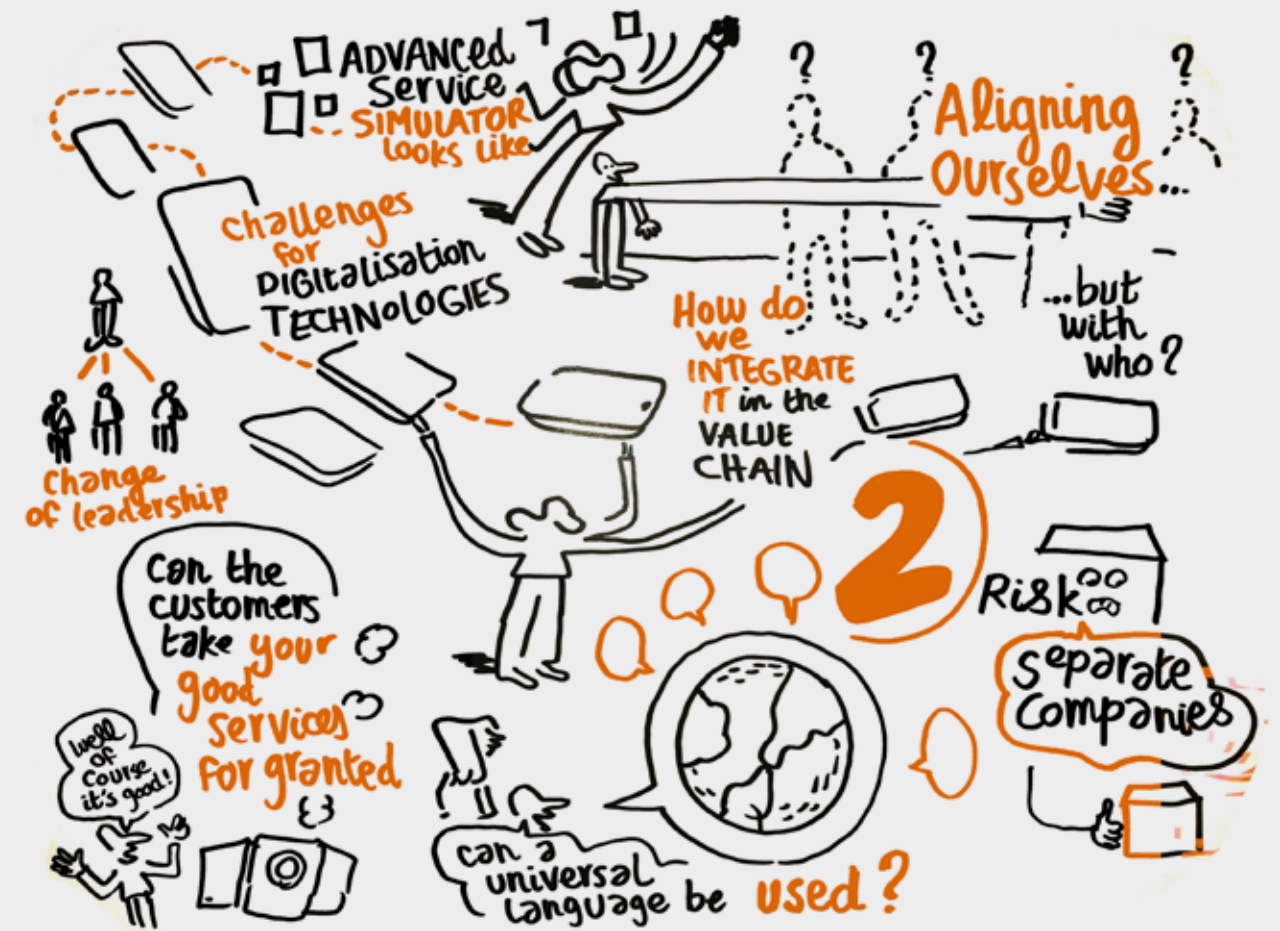 ADVANCED
Service
SIMULATOR
Looks Like
?
?
?
Aligning
Ourselves...
...but
with
who?
challenges
for
DIGItalisation
TECHNOLOGIES
How do
we
INTEGRATE
IT in the
VALUE
CHAIN
change
of leadership
2
can the
customers
take your
good
services
for granted
well
of
course
it's good!
Risk
separate
companies
can a
universal
language be used?